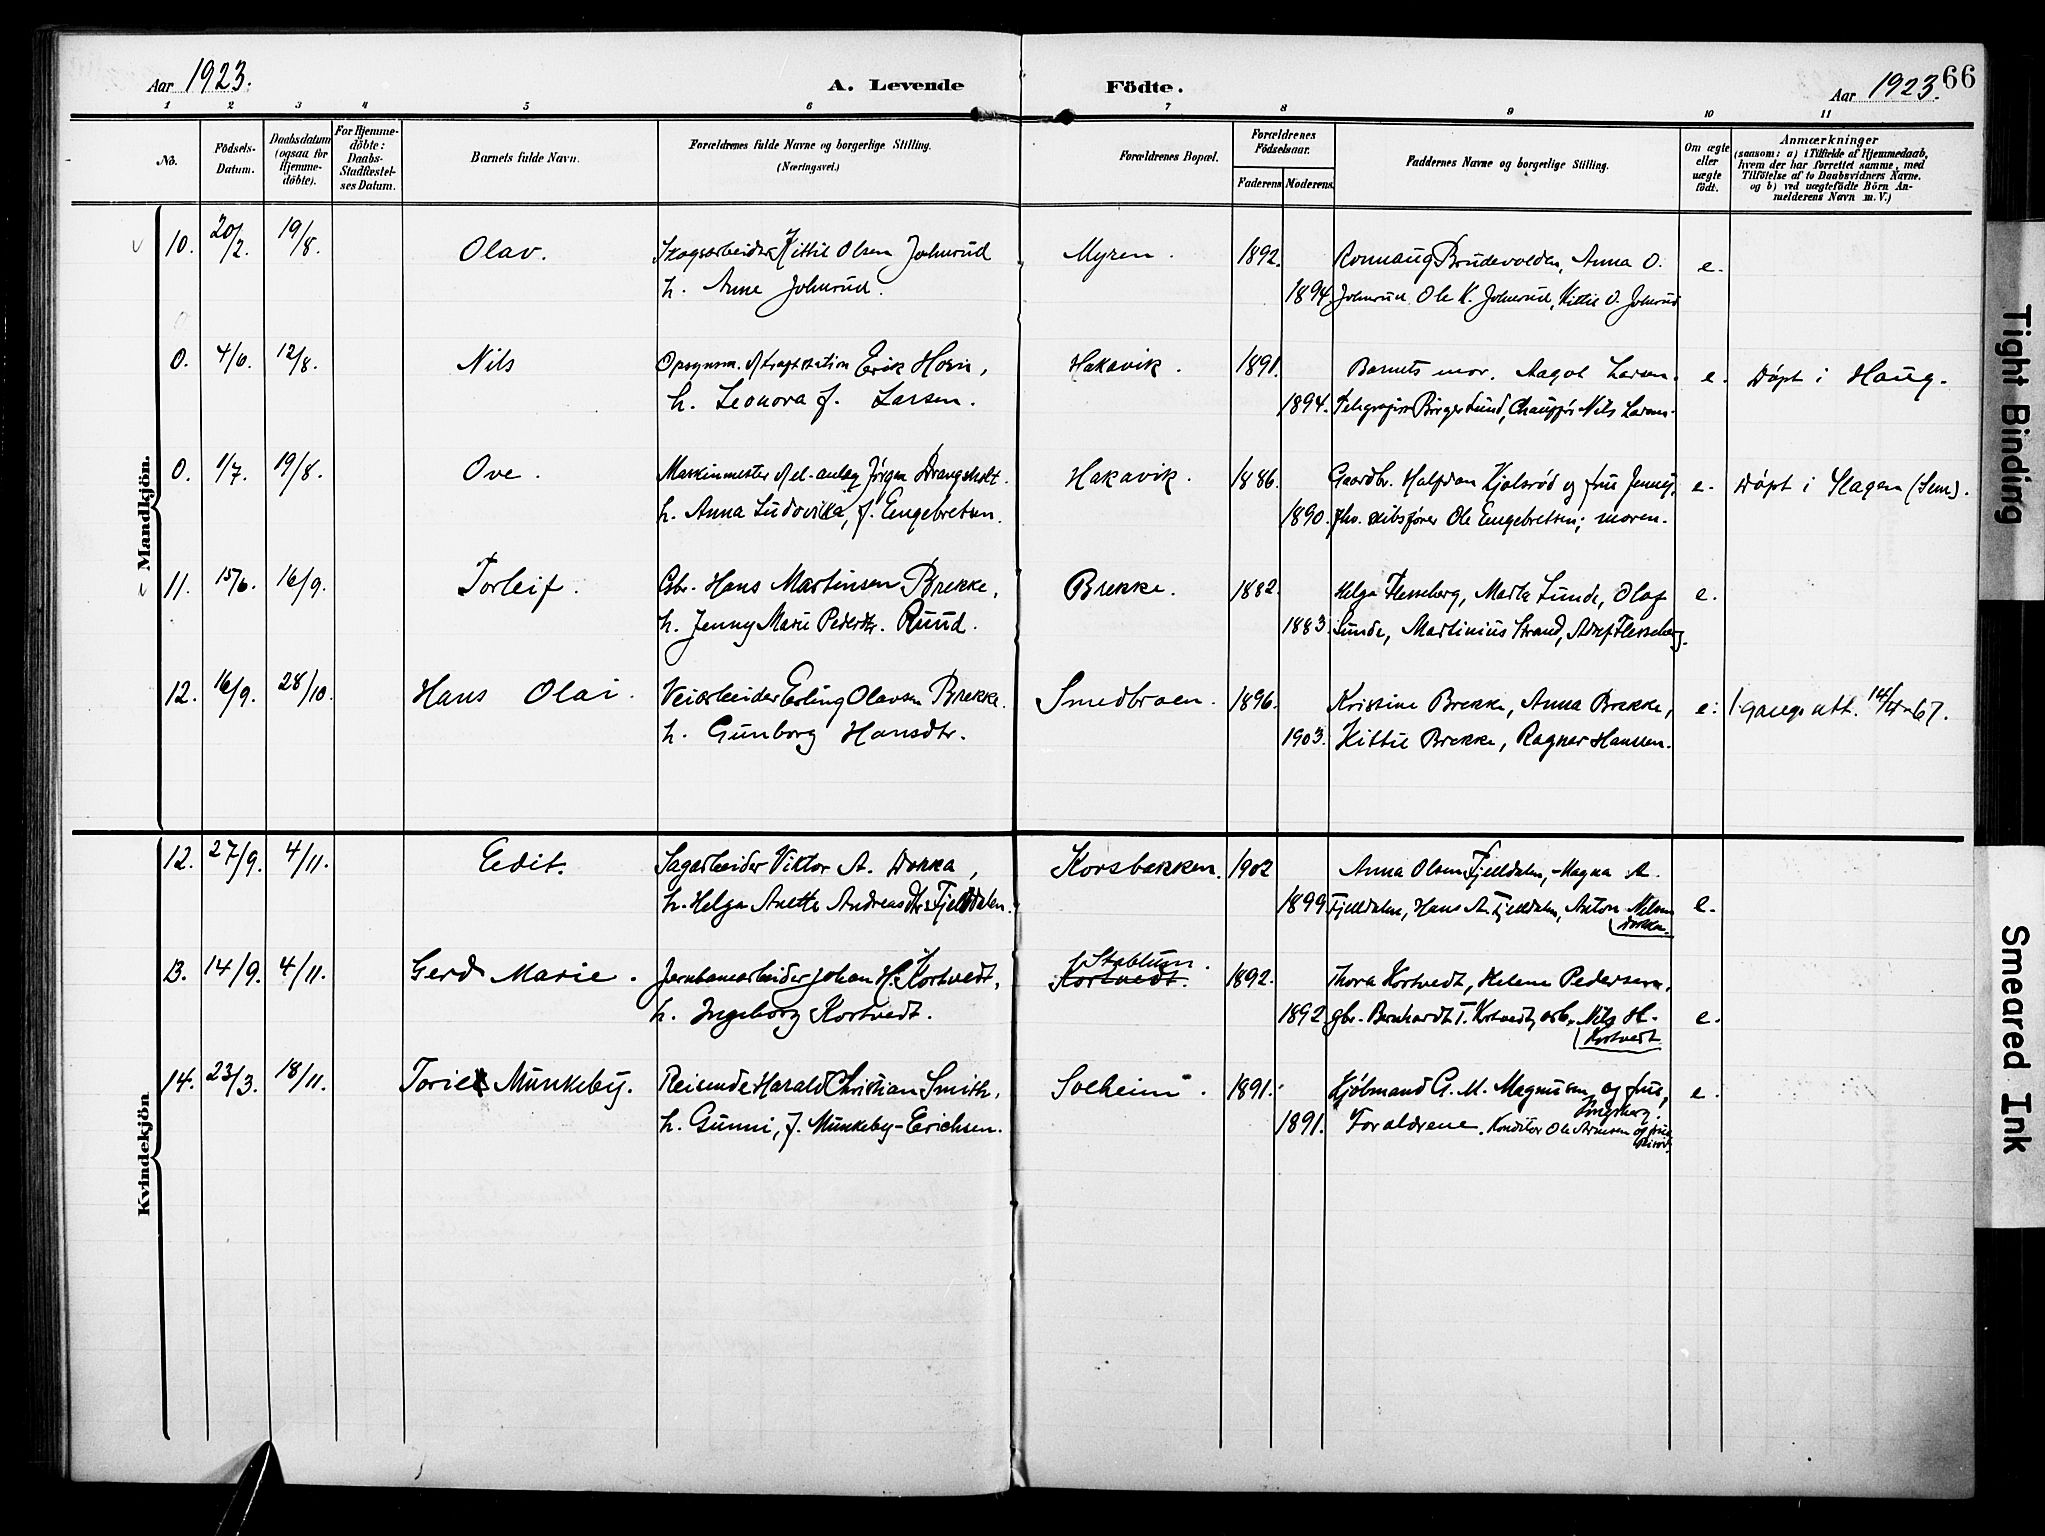 Aar 1923.
A. Levende Födte.
Aar 1923.
66
1 2 3 4 5 6 7 8 9 10 11
No.
Födsels-
Datum.
Daabsdatum
(ogsaa for
Hjemme-
döbte).
For Hjemme-
döbte:
Daabs-
Stadfæstel-
ses Datum.
Barnets fulde Navn.
Forældrenes fulde Navne og borgerlige Stilling.
(Næringsvei.)
Forældrenes Bopæl.
Forældrenes
Födselsaar.
Faderens Moderens.
Faddernes Navne og borgerlige Stilling.
Om ægte
eller
uægte
födt.
Anmærkninger
(saasom: a) i Tilfælde af Hjemmedaab,
hvem der har forrettet samme, med
Tilföielse af to Daabsvidners Navne.
og b) ved uægtefödte Börn An-
melderens Navn m. V.)
Mandkjön.
10. 20/2. 19/8. Olav. Skogsarbeider Kittil Olsen Johnsrud Myren. 1892. Ronnaug Brudevolden, Anna O. e.
h. Anne Johnsrud. 1894. Johnsrud. Ole K. Johnsrud, Kittil O. Johnsrud
0. 4/6. 12/8. Nils Opsynsm. v/ kraftstation Erik Horn, Hakavik. 1891. Barnets mor. Aagot Larsen. e. Döpt i Haug.
h. Leonora f. Larsen. 1894. Telegrafist Birger Lund, Chauffør Nils Larsen.
0. 1/7. 19/8. Ove. Maskinmester v/ el-anlæg Jørgen Drangsholt. Hakavik. 1886. Gaardbr. Halfdan Kjølsrød og frue Jenny, e. Döpt i Slagen (Sem).
h. Anna Ludovika, f. Engebretsen. 1890. fhv. skibsfører Ole Engebretsen; moren.
11. 15/6. 16/9. Torleif. Gbr. Hans Martinsen Brekke, Brekke. 1882. Helga Flesseberg, Marta Lunde, Olaf e.
h. Jenny Marie Pedersdtr. Ruud. 1883. Lunde, Martinius Strand, Adolf Flesseberg.
12. 16/9. 28/10. Hans Olai. Veiarbeider Erling Olavsen Brekke. Smedbraaen. 1896. Kristine Brekke, Anna Brekke, e. 1. gangs att. 14/4-67.
h. Gunborg Hansdtr. 1903. Kittil Brekke, Ragnar Hanssen.
Kvindekjön
12. 27/9. 4/11. Edit. Sagarbeider Viktor A. Dokka, Korsbakken. 1902 Anna Olsen Fjelldalen, Magna A.
h. Helga Anette Andreasdtr. Fjelldalen. 1899. Fjelldalen, Hans A. Fjelldalen, Anton Nilsen e.
Dokka.
Stablum.
13. 14/9. 4/11. Gerd Marie. Jernbanearbeider Johan H. Kortvedt, Kortvedt. 1892. Thora Kortvedt, Helene Pedersen,
h. Ingeborg Kortvedt. 1892 gbr. Bernhardt T. Kortvedt, arb. Nils H. e.
Kortvedt
14. 23/3. 18/11. Toril Munkeby. Reisende Harald Christian Smith, Solheim. 1891. Kjøbmand G. M. Magnusen og frue, e.
Kongsberg.
h. Gunni, f. Munkeby-Erichsen. 1891. Forældrene. Konditor Ole Arnesen og frue
Tight Binding
Smeared Ink